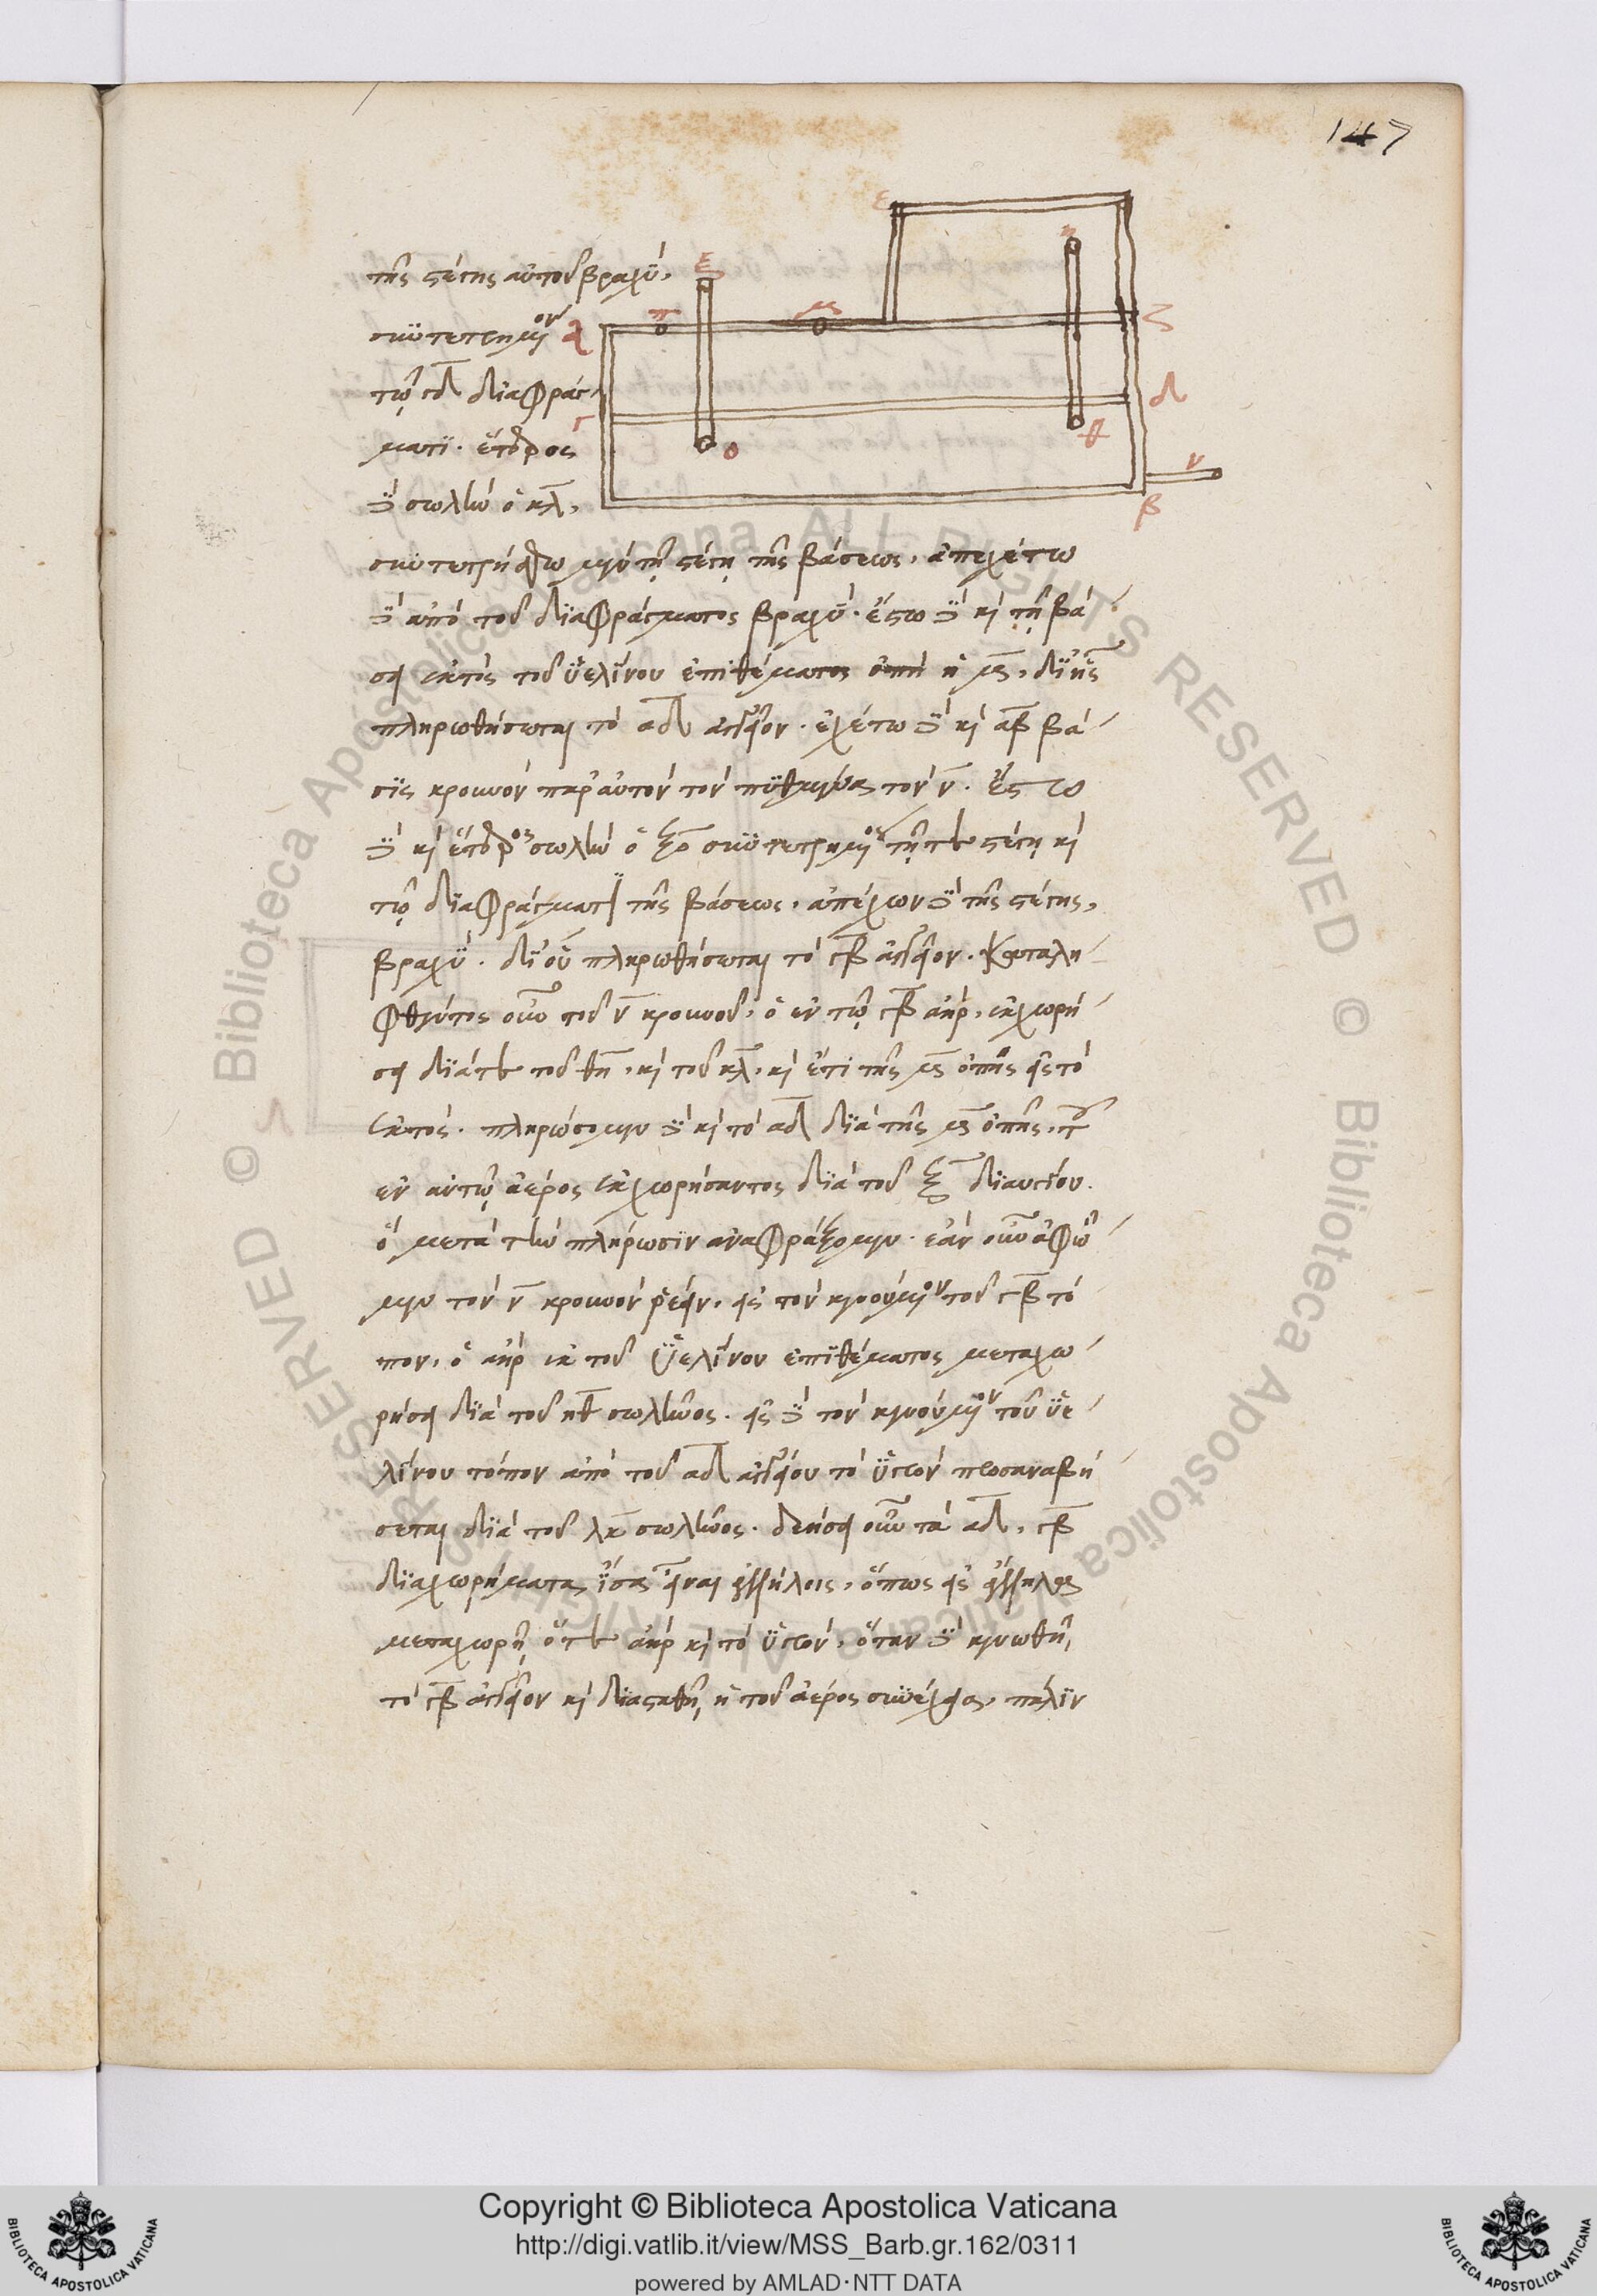 147
ε
η
τῆς στέγης αὐτοῦ βραχύ,
ξ
π
μ
ζ
συντετρημένον
α
τῷ γδ διαφράγ-
δ
γ
ματι. ἕτερος
ο
θ
ν
δὲ σωλὴν ὁ κλ,
β
συντετρήσθω μὲν τῇ στέγῃ τῆς βάσεως, ἀπεχέτω
δὲ ἀπὸ τοῦ διαφράγματος βραχύ. ἔστω δὲ καὶ τῇ βά-
σει ἐκτὸς τοῦ ὑελίνου ἐπιθέματος ὀπὴ ἡ μ, δι' ἧς
πληρωθήσεται τὸ αδ ἀγγεῖον. ἐχέτω δὲ καὶ αβ βά-
σις κρουνὸν παρ' αὐτὸν τὸν πυθμένα τὸν ν. ἔστω
δὲ καὶ ἕτερος σωλὴν ὁ ξο συντετρημένος τῇ τε στέγῃ καὶ
τῷ διαφράγματι τῆς βάσεως, ἀπέχων δὲ τῆς στέγης,
βραχύ. δι' οὗ πληρωθήσεται τὸ γβ ἀγγεῖον. καταλη-
φθέντος οὖν τοῦ ν κρουνοῦ, ὁ ἐν τῷ γβ ἀὴρ, ἐκχωρή
σει διά τε τοῦ θη, καὶ τοῦ κλ, καὶ ἔτι τῆς μ ὀπῆς εἰς τὸ
ἐκτός. πληρώσομεν δὲ καὶ τὸ αδ διὰ τῆς μ ὀπῆς, τοῦ
ἐν αὐτῷ ἀέρος ἐκχωρήσαντος διὰ τοῦ ξ διαυγίου.
ὃ μετὰ τὴν πλήρωσιν ἀναφράξομεν. ἐὰν οὖν ἀφῶ-
μεν τὸν ν κρουνὸν ῥέειν, εἰς τὸν κενούμενον τοῦ γβ τό
πον, ὁ ἀὴρ ἐκ τοῦ ὑελίνου ἐπιθέματος μεταχω-
ρήσει διὰ τοῦ ηθ σωλῆνος. εἰς δὲ τὸν κενούμενον τοῦ ὑε-
λίνου τόπον ἀπὸ τοῦ αδ ἀγγείου τὸ ὑγρὸν προσαναβή
σεται διὰ τοῦ λκ σωλῆνος. δεήσει οὖν τὰ αδ, γβ
διαχωρήματα ἴσα εἶναι ἀλλήλοις, ὅπως εἰς ἄλληλα
μεταχωρῇ ὅ τε ἀὴρ καὶ τὸ ὑγρόν, ὅταν δὲ κενωθῇ,
τὸ γβ ἀγγεῖον καὶ διασπαθῇ ἡ τοῦ ἀέρος συνέχεια, πάλιν
Copyright © Biblioteca Apostolica Vaticana
http://digi.vatlib.it/view/MSS_Barb.gr.162/0311
powered by AMLAD·NTT DATA